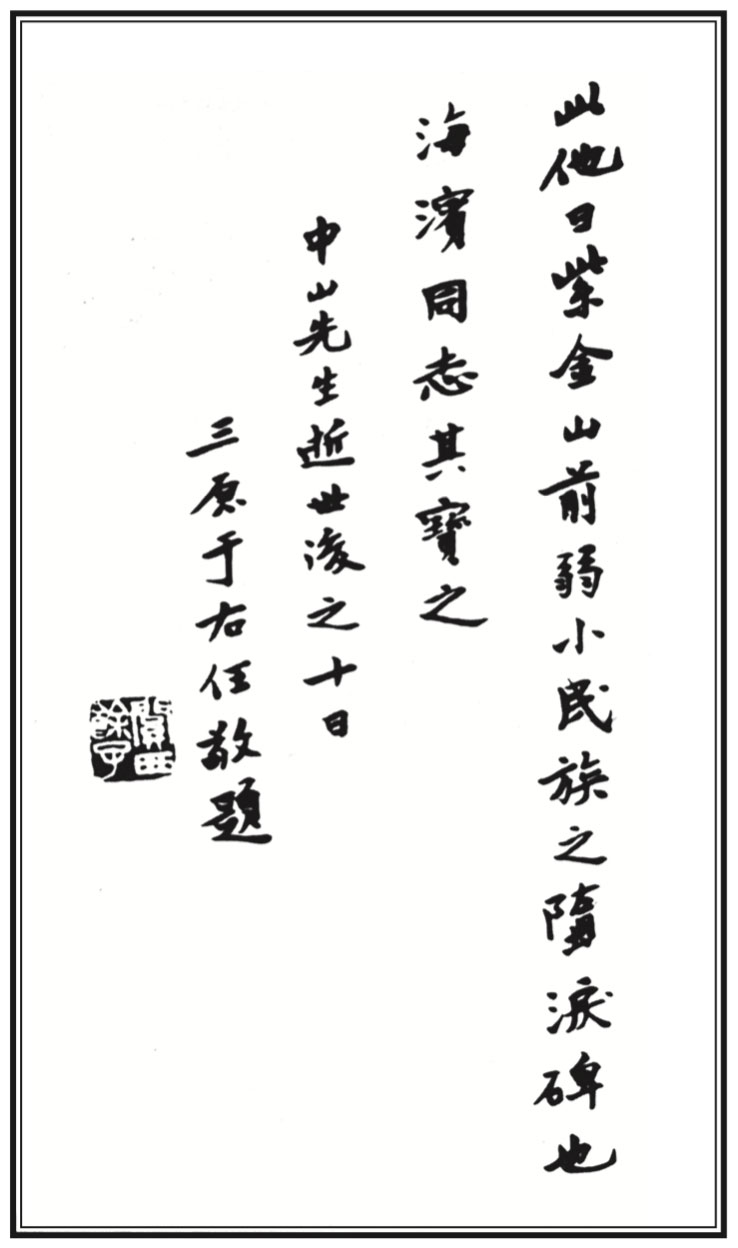 此他日紫金山前弱小民族之隋淚碑也
海濱同志其寶之
中山先生逝世後之十日
三原于右任敬題
關西餘子